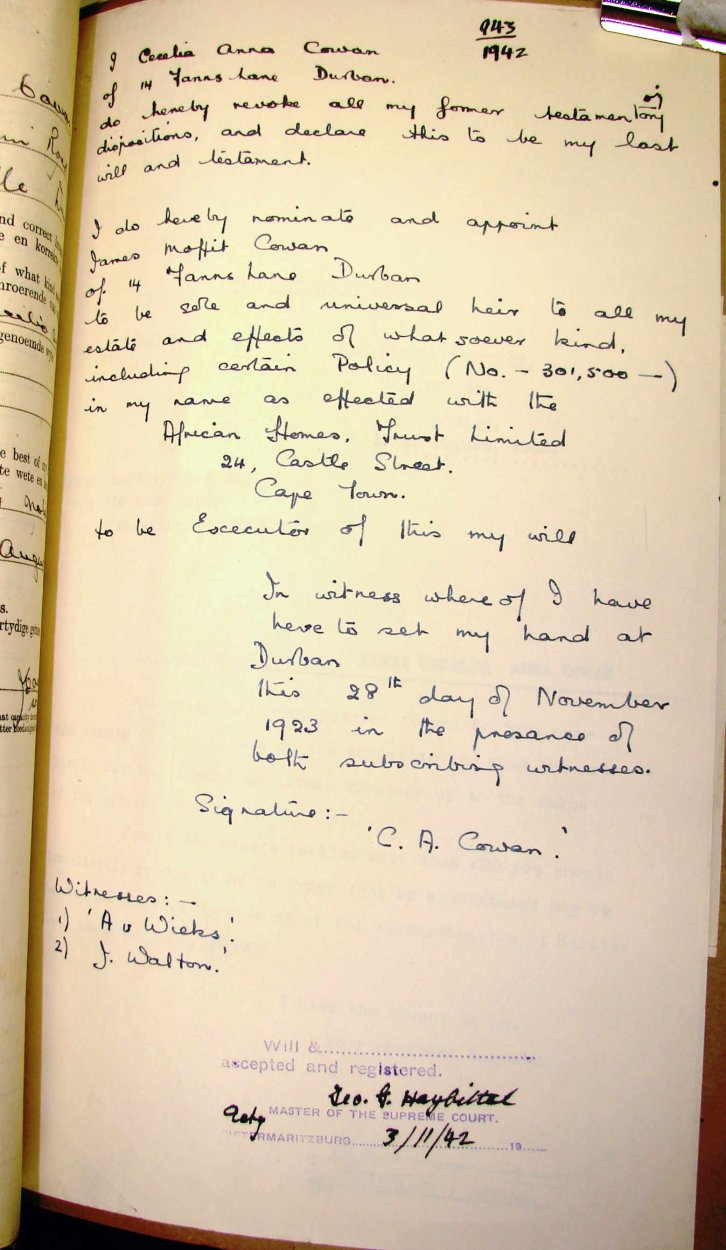 943
1942
I Cecelia Anna Cowan
of 14 Fanns Lane Durban.
do hereby revoke all my former testamentory
dispositions, and declare this to be my last
will and testament.
I do hereby nominate and appoint
James Moffit Cowan
of 14 Fanns Lane Durban
to be sole and universal heir to all my
estate and effects of what soever kind,
including certain Policy (No. - 301,500 -)
in my name as effected with the
African Homes, Trust Limited
24, Castle Street.
Cape Town.
to be Excecutor of this my will
In witness where of I have
here to set my hand at
Durban
this 28th day of November
1923 in the presance of
both subscribing witnesses.
Signature:-
'C. A. Cowan.'
Witnesses:-
1) 'A v Wieks'.
2) J. Walton.'
Will &
accepted and registered.
Geo. J. Haybittel
Actg MASTER OF THE SUPREME COURT.
PIETERMARITZBURG 3/11/42 19